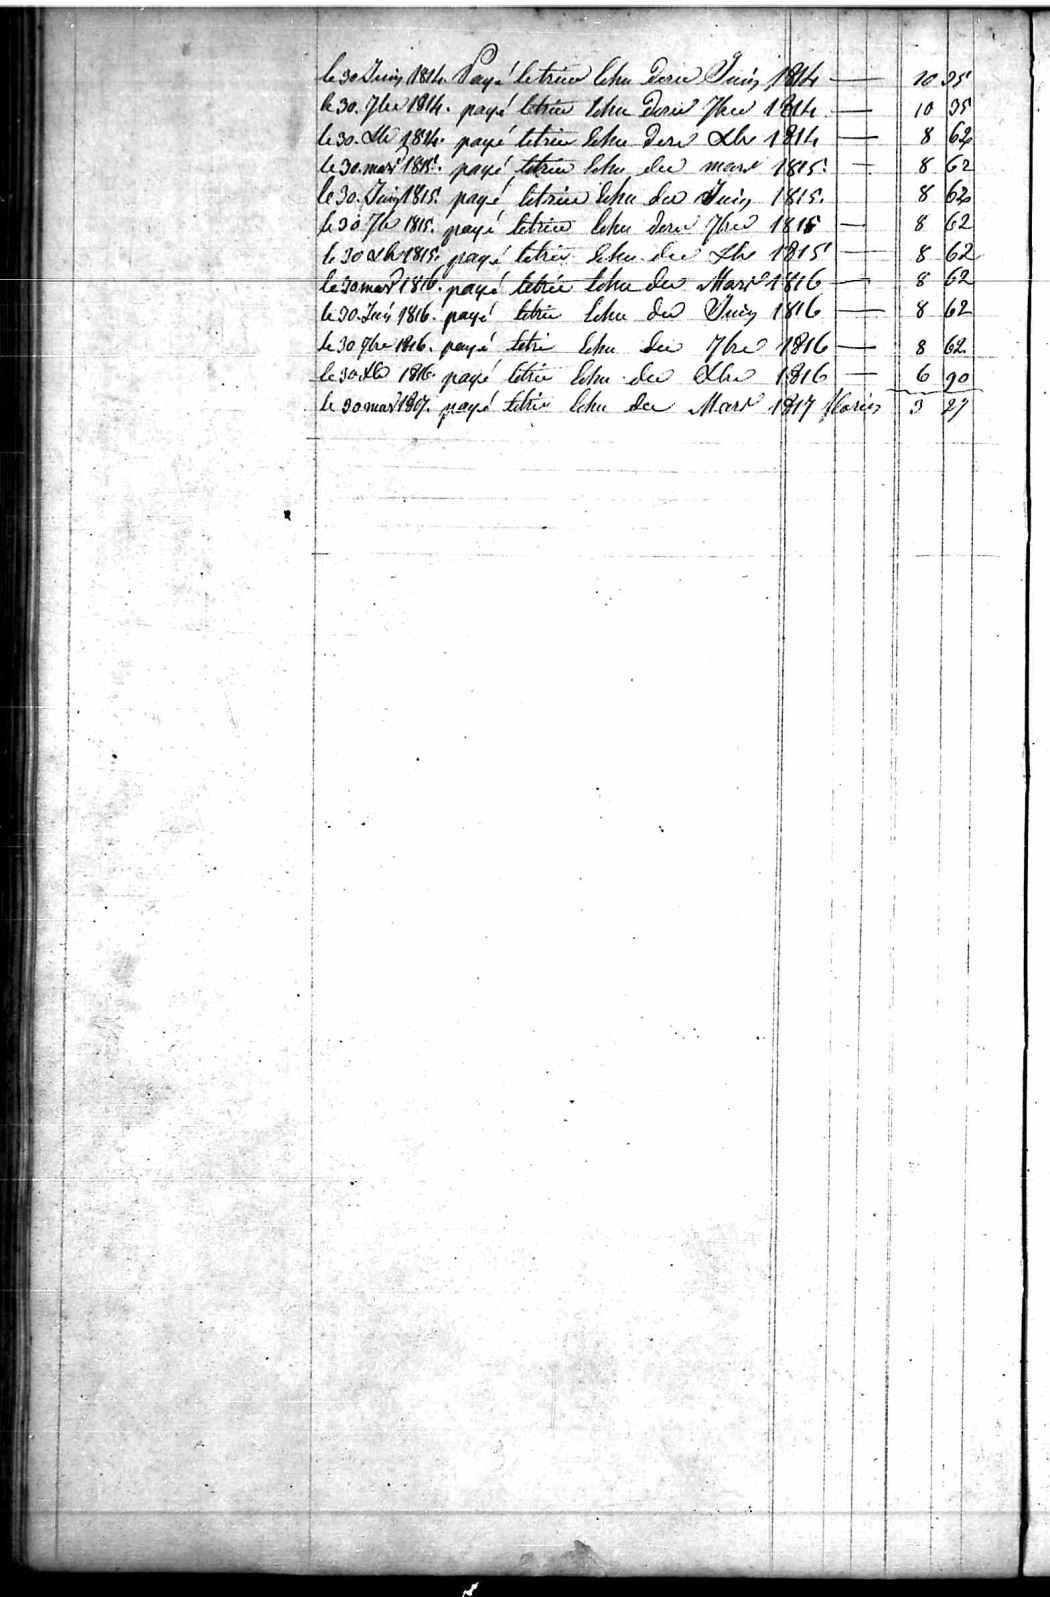 le 30 Juin 1814. Payé letrim Echu Dern Juin 1814 — 10 35
le 30. 7bre 1814. payé letrim Echu Dern 7bre 1814 — 10 35
le 30. Xbr 1814. payé letrim Echu Dern Xbr 1814 — 8 62
le 30. mars 1815. payé letrim Echu du mars 1815. — 8 62
le 30. Juin 1815. payé letrim Echu du Juin 1815. 8 62
le 30 7br 1815. payé letrim Echu Dern 7bre 1815 — 8 62
le 30 Xbr 1815. payé letrim Echu du Xbr 1815 — 8 62
le 30 mars 1816. payé letrim Echu du Mars 1816 — 8 62
le 30. Juin 1816. payé letrim Echu du Juin 1816 — 8 62
le 30 7bre 1816. payé letri Echu du 7bre 1816 — 8 62
le 30 Xb 1816. payé letrim Echu du Xbre 1816 — 6 90
le 30 mars 1817. payé letrim Echu du Mars 1817 florins 3 27